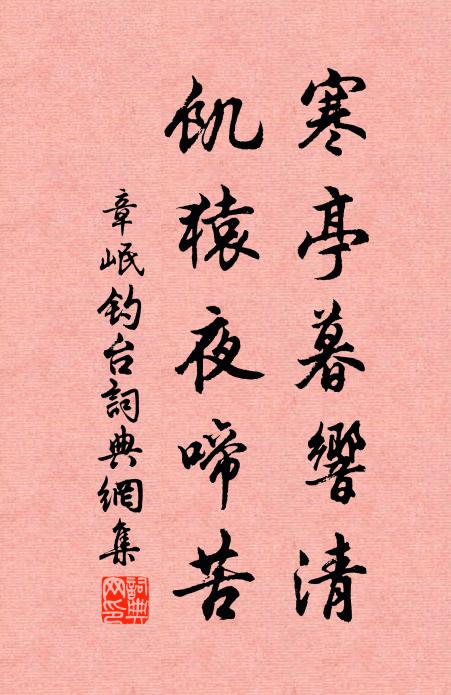 寒亭暮響清
飢猿夜啼苦
章岷釣台詞典網集
詞典網印